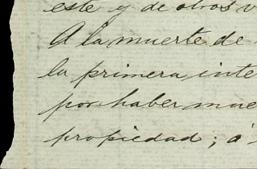 este y de otros v
A la muerte de
la primera inte
por haber mue
propiedad; á